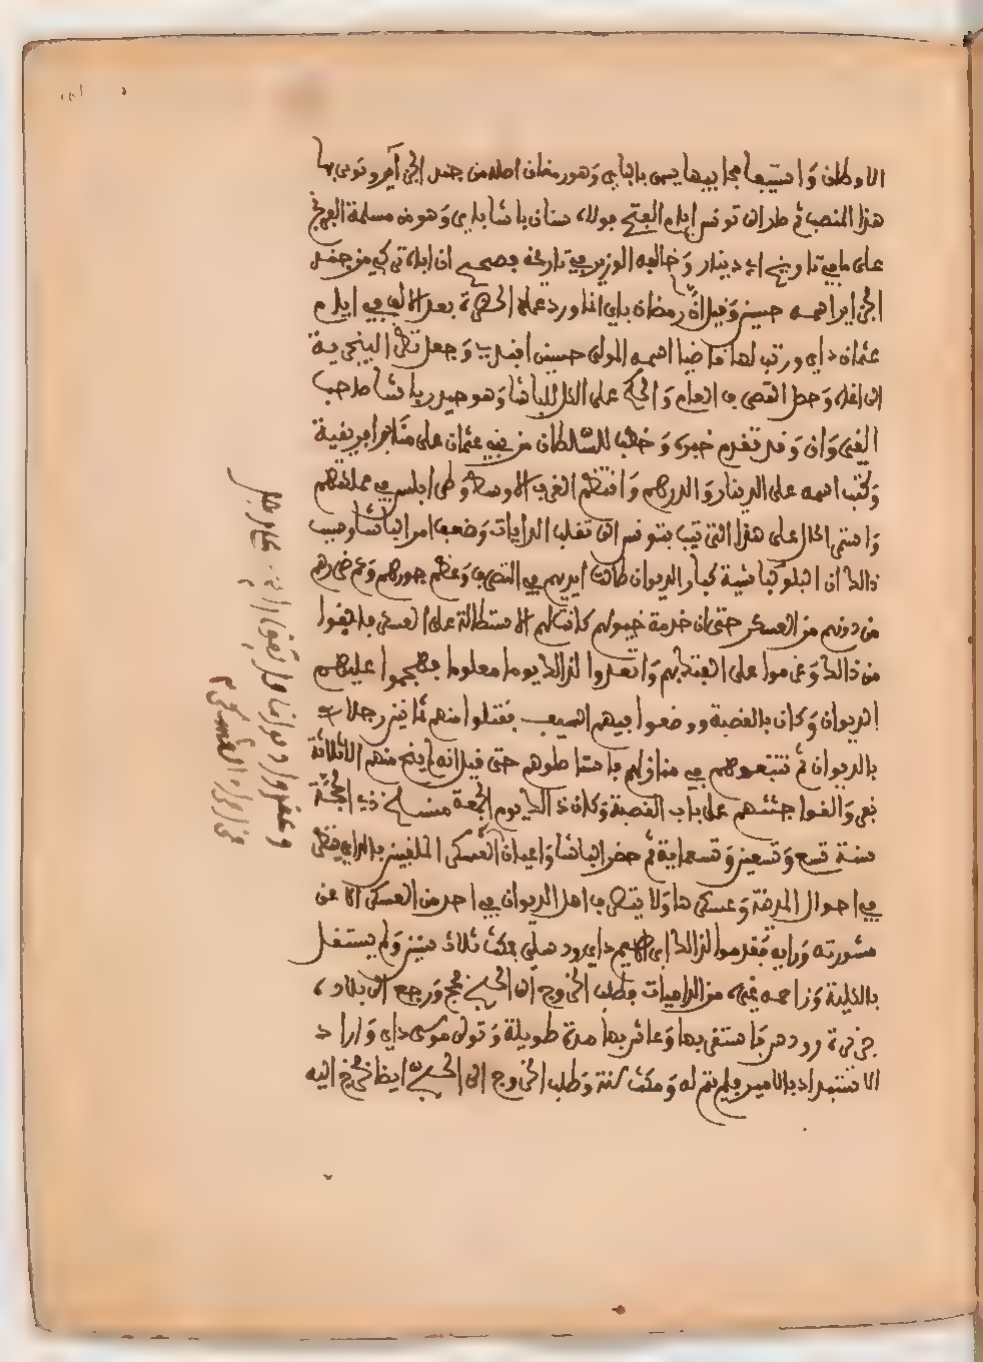 الاوطان واستيعاب مجابيها يسمى بالباي وهو رمضان اصله من جند الجزاير وتوفي بها
هذا المنصب ثم طراني تونس ايام الفتح مولاه سنان باشا باي وهو من مسلمة
على ما في تاريخ ابن دينار وخالفه الوزير في تاريخه فصحح ان اول تركي من جند
الجزاير اسمه حسين وقيل ان رمضان باي انما ورد عمله بعد الالف في ايام
عثمان داي ورتب لها قاضيا اسمه المولى حسين افندي وجعل نظر الينجرية
الى اغة وجعل التصرف العام والحكم على الكل للباشا وهو حيدر باشا صاحب
القيروان وقد تقدم خبره وخطب للسلطان من بني عثمان على منابر افريقية
وكتب اسمه على الدينار والدرهم وانتظم المغرب الاوسط وطرابلس في عملتهم
واستمر الحال على هذا الترتيب بتونس الى تغلب الدايات وضعف امر الباشا وسبب
ذالك ان البلوكباشية كبار الديوان طالت ايديهم في التصرف وعظم جورهم وعم ضررهم
من دونهم من العسكر حتى ان خدمة خيولهم كانت لهم الاستطالة على العسكر فانفوا
من ذالك وعزموا على الفتك بهم واتعدوا لذالك يوما معلوما فهجموا عليهم
الديوان وكان بالقصبة ووضعوا فيهم السيف فقتلوا منهم ثمانين رجلا
بالديوان ثم تتبعوهم في منازلهم فاستاصلوهم حتى قيل انه لم ينج منهم الا ثلاثة
نفر والقوا جثثهم على باب القصبة وكان ذالك يوم الجمعة منسلخ ذي الحجة
سنة تسع وتسعين وتسعماية ثم حضر الباشا واعيان العسكر الملقبين بالداي فنظر
في احوال المدينة وعسكرها ولا يتصرف اهل الديوان في احد من العسكر الا عن
مشورته ورايه فقدموا لذالك ابراهيم داي رودسلي فمكث ثلاث سنين ولم يستقل
بالكلية وزاحمه غيره من الدايات فطلب الخروج الى الحج فحج ورجع الى بلاده
جزيرة رودس فاستقر بها وعاش بها مدة طويلة وتولى موسى داي واراد
الاستبداد بالامر فلم يتم له ومكث سنة وطلب الخروج الى الحج ايضا فخرج اليه